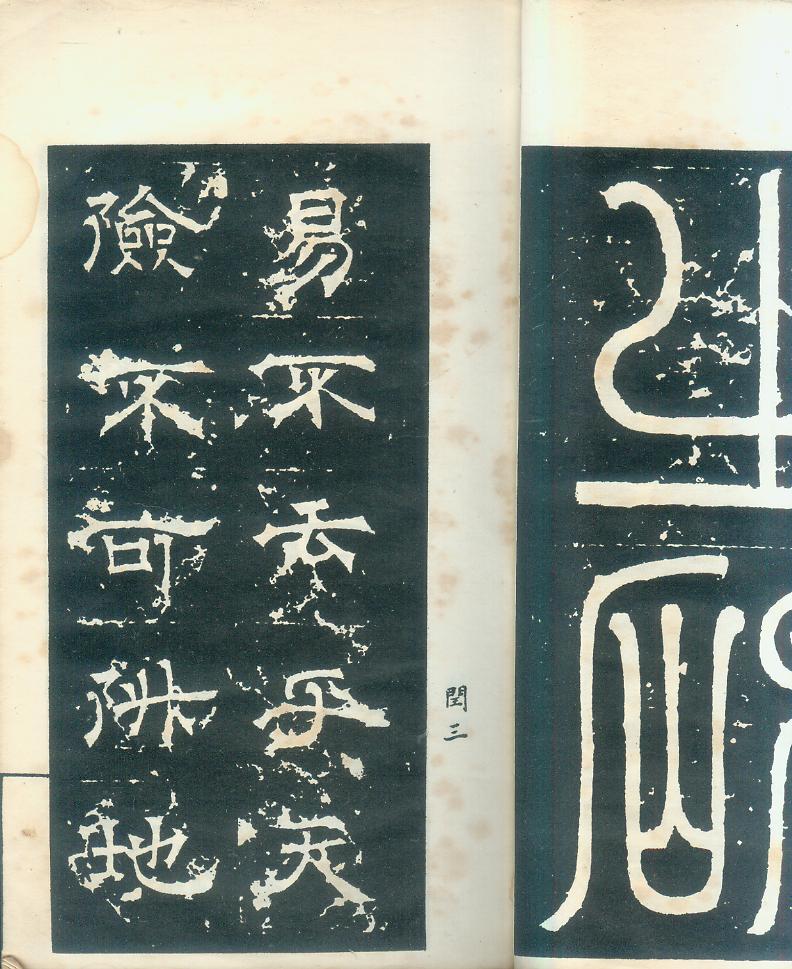 閏三
易不云乎天
險不可阩地